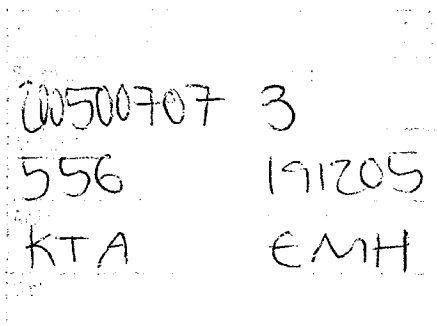 00500707 3
556 191205
KTA EMH